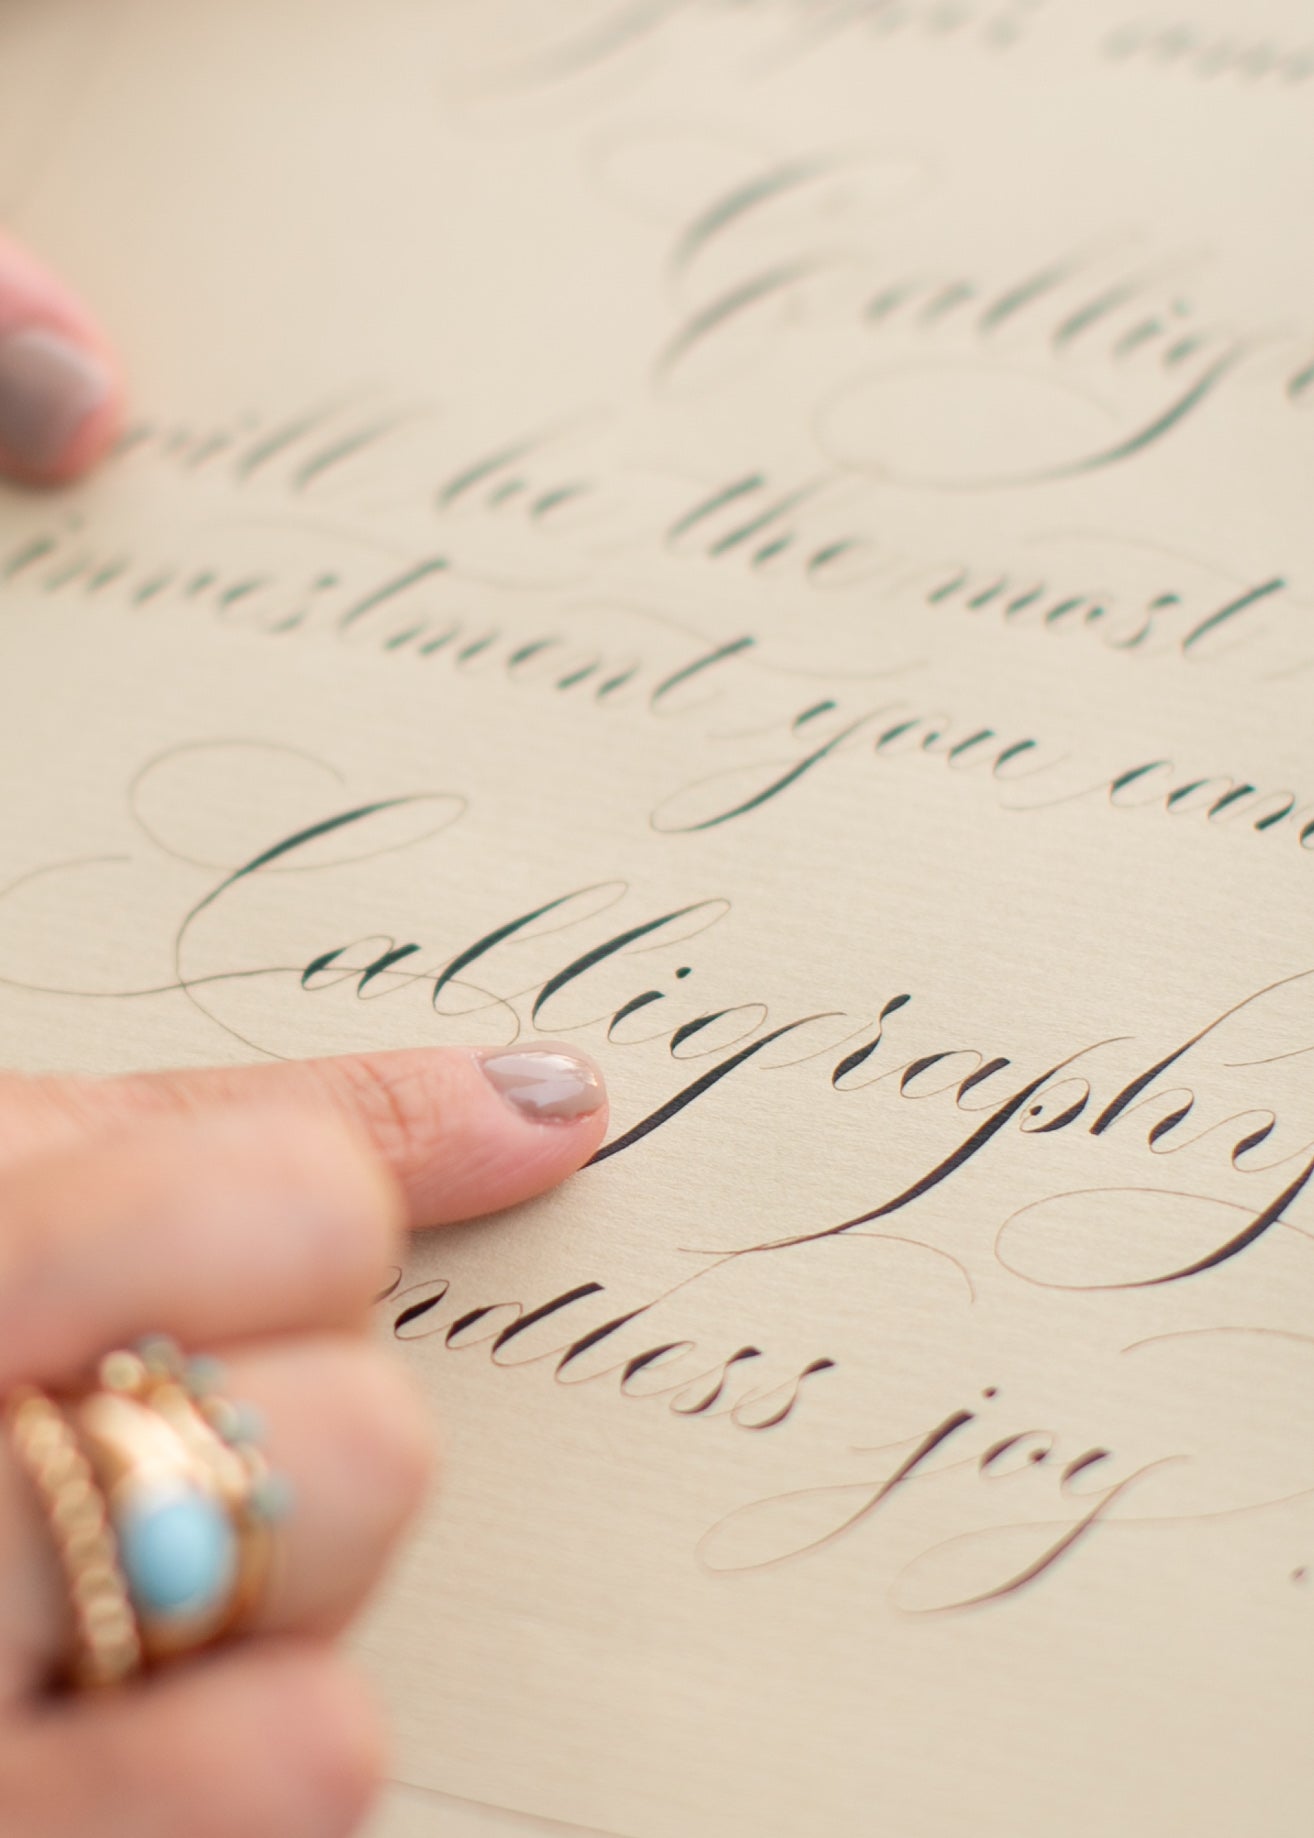 Callig
will be the most
investment you can
Calligraphy
endless joy.